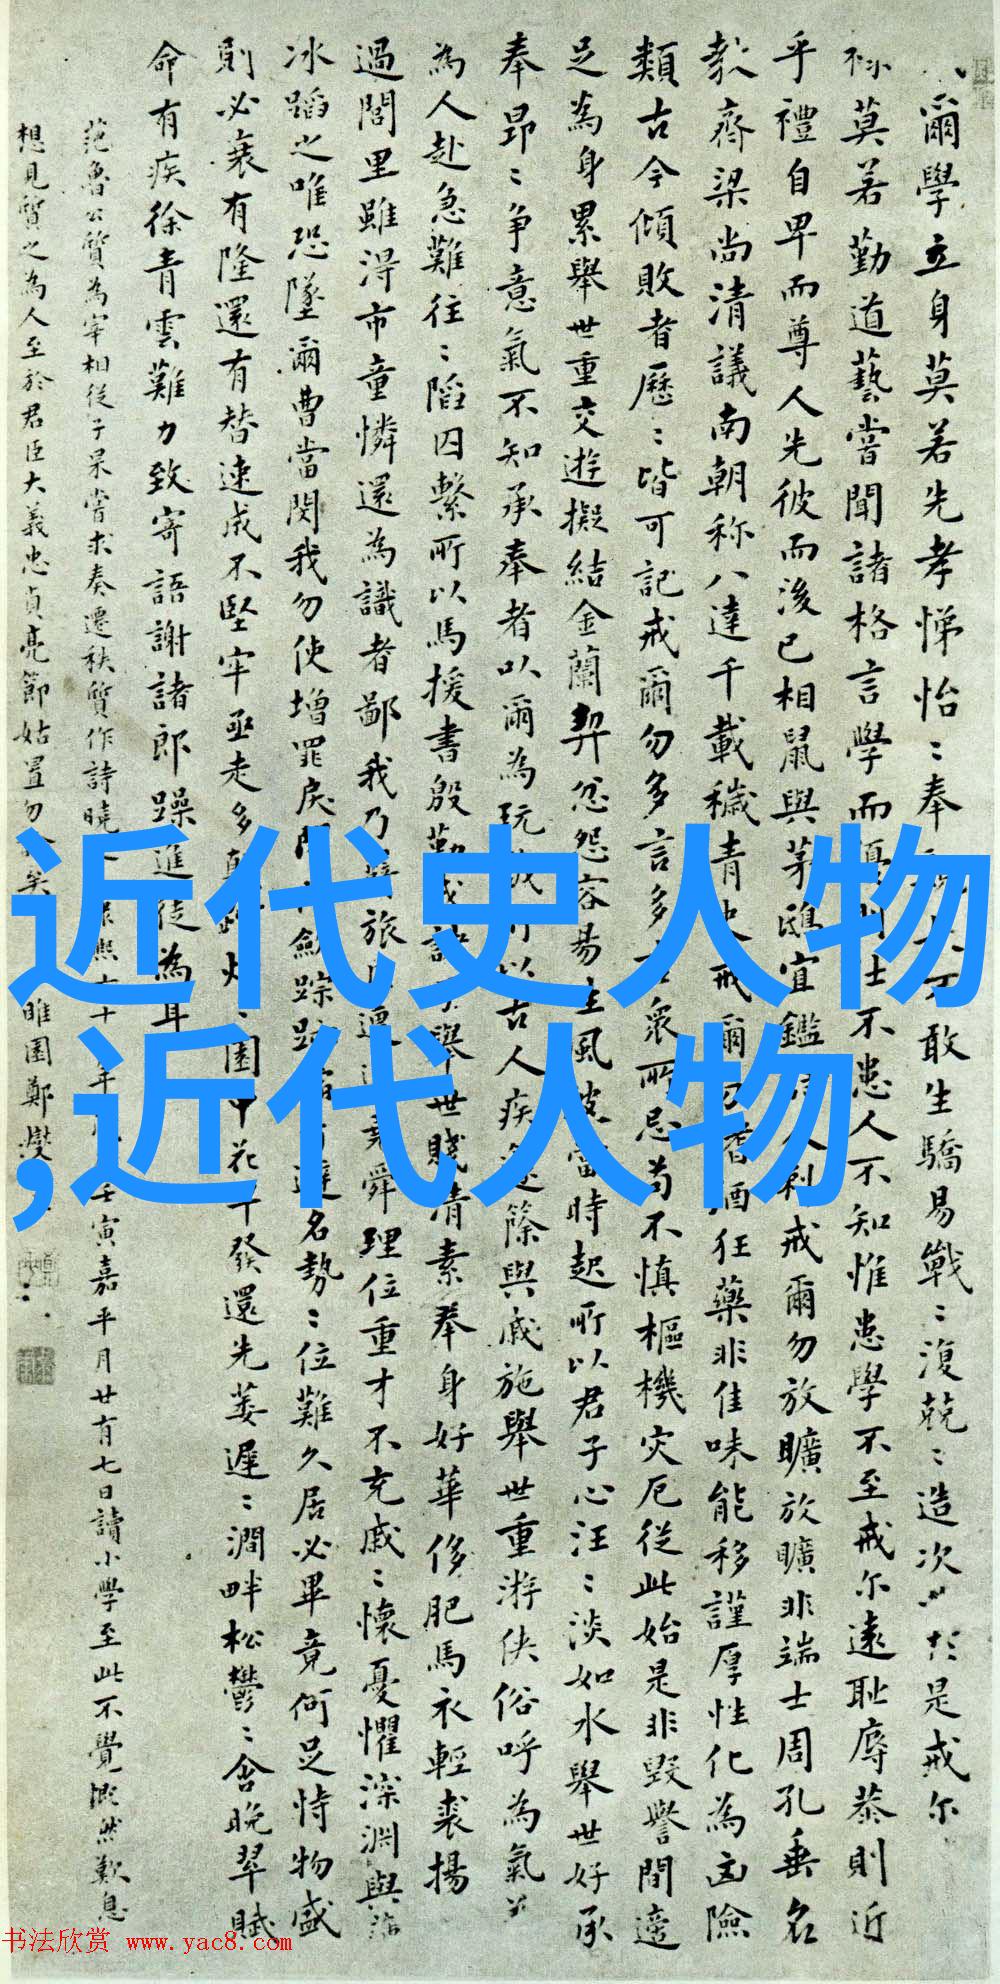 爾學立身莫若先孝悌怡〻奉不敢生驕易戰〻復兢〻造次於是戒尔
祢莫若勤道藝嘗聞諸格言學而優則仕不患人不知惟患學不至戒尔遠恥辱恭則近
乎禮自卑而尊人先彼而後己相鼠與茅鴟宜鑑人刺戒爾勿放曠放曠非端士周孔垂名
教齊梁尚清議南朝称八達千載穢青史戒爾勿耆酒狂藥非佳味能移謹厚性化為凶險
類古今傾敗者歷〻皆可記戒爾勿多言多言衆所忌苟不慎樞機灾厄從此始是非毀譽間適
足為身累舉世重交遊擬結金蘭契忿怨容易生風波當時起所以君子心汪〻淡如水舉世好承
奉昂〻争意氣不知承奉者以爾為玩戲所以古人疾籧篨與戚施舉世重游俠俗呼為氣義
為人赴急難往〻陷囚繫所以馬援書殷勤戒諸子舉世賤清素奉身好華侈肥馬衣輕裘揚
過閭里雖淂市童憐還為識者鄙我乃羇旅臣遭逢堯舜理位重才不充戚〻懷憂懼深淵與薄
冰蹈之唯恐墜爾曹當閔我勿使增罪戾閉門歛踪跡縮首避名勢〻位難久居必畢竟何足恃物盛
則必衰有隆還有替速成不堅牢亟走多顛躓灼〻園中花早發還先萎遲〻澗畔松鬱〻含晚翠賦
命有疾徐青雲難力致寄語謝諸郎躁進徒為耳
范魯公質為宰相從子杲嘗求奏遷秩質作詩曉之康熙六十一年壬寅嘉平月廿有七日讀小學至此不覺慨然歎息
想見質之為人至於君臣大義忠貞亮節姑置勿論矣 睢園鄭燮
近代史人物
,近代人物
书法欣赏 www.yac8.com